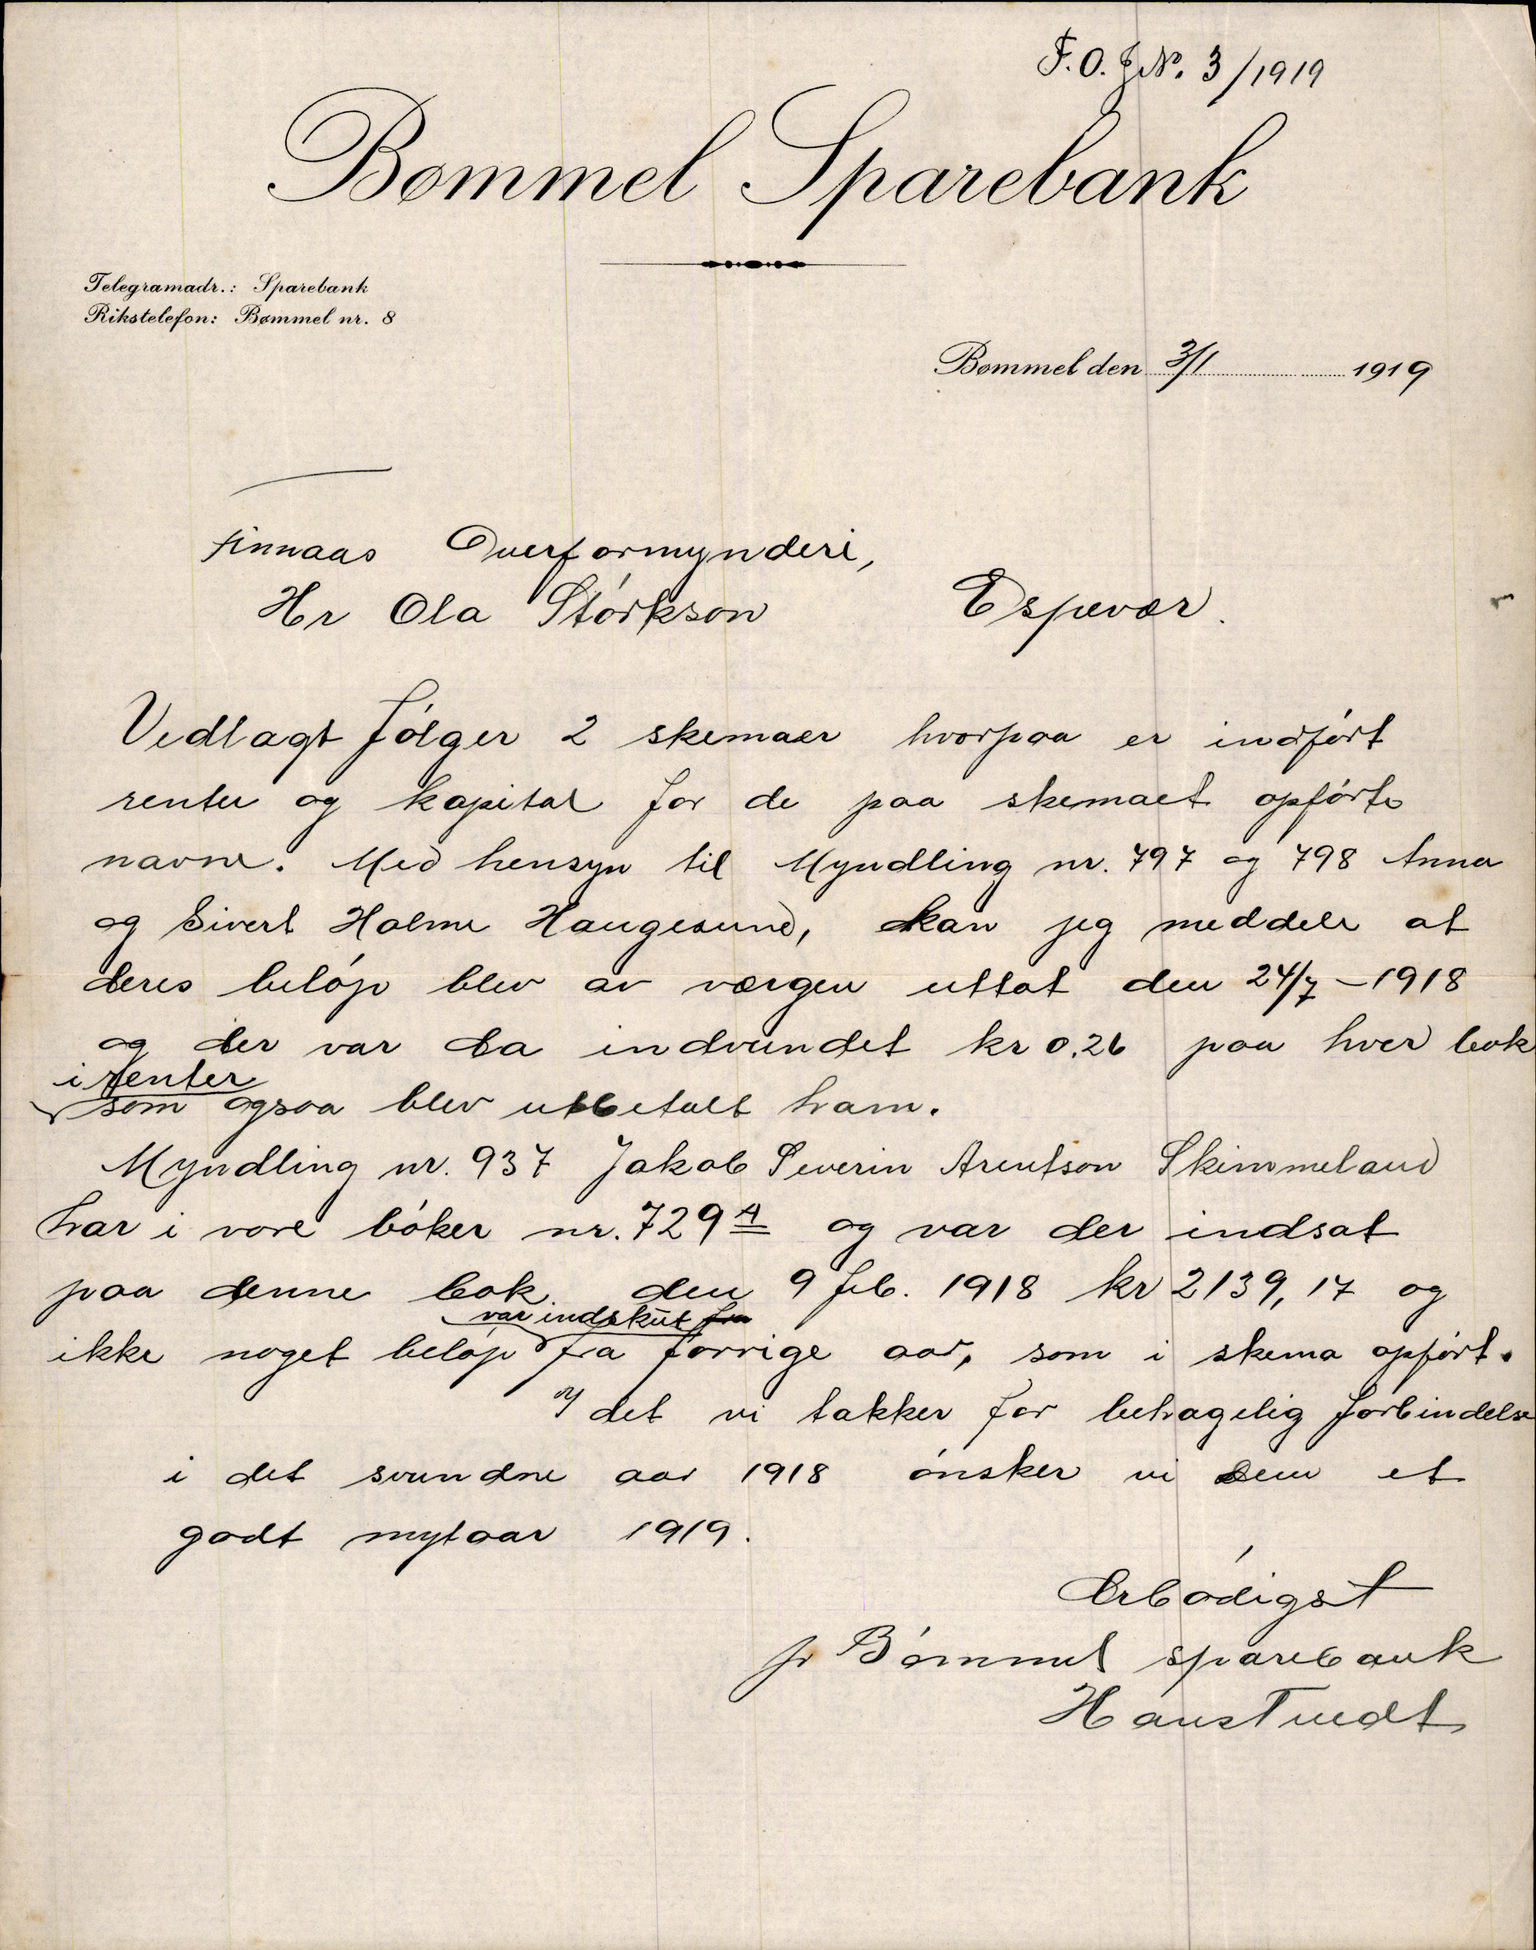 F.O. J.No. 3/1919
Bømmel Sparebank
Telegramadr.: Sparebank
Rikstelefon: Bømmel nr. 8
Bømmel den 3/1 1919
Finnaas Overformynderi,
Hr Ola Størkson Espevær.
Vedlagt følger 2 skemaer hvorpaa er indført
renter og kapital for de paa skemaet opførte
navne. Med hensyn til Myndling nr. 797 og 798 Anna
og Sivert Holme Haugesund, kan jeg meddele at
deres beløp blev av værgen uttat den 24/7 – 1918
og der var da indvundet kr 0.26 paa hver bok
i renter
som ogsaa blev utbetalt ham.
Myndling nr. 937 Jakob Severin Arentson Skimmeland
har i vore bøker nr. 729 A og var der indsat
paa denne bok den 9 feb. 1918 kr 2139,17 og
var indskut fra
ikke noget beløp fra forrige aar, som i skema opført.
Idet vi takker for behagelig forbindelse
i det svundne aar 1918 ønsker vi Dem et
godt nytaar 1919.
Ærbødigst
pr Bømmel sparebank
Hans Tvedt